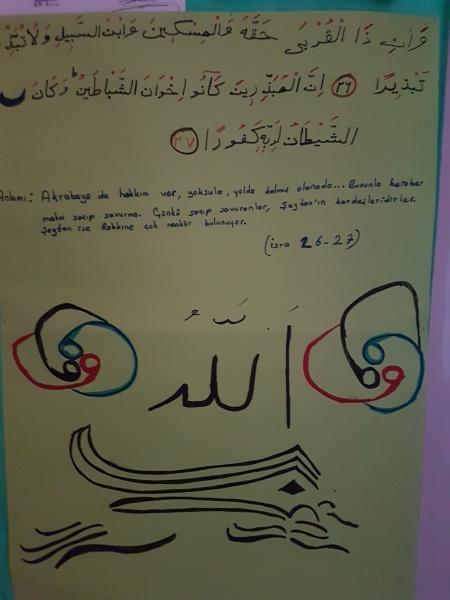 وَاٰتِ ذَا الْقُرْبٰى حَقَّهُ وَالْمِسْكِينَ وَابْنَ السَّبِيلِ وَلَا تُبَذِّ
تَبْذِيرًا ٢٦ اِنَّ الْمُبَذِّرِينَ كَانُوا اِخْوَانَ الشَّيَاطِينِ وَكَانَ
الشَّيْطَانُ لِرَبِّهِ كَفُورًا ٢٧
Anlamı: Akrabaya da hakkını ver, yoksula, yolda kalmış olanada... Bununla beraber
malını saçıp savurma. Çünkü saçıp savuranlar, Şeytan'ın kardeşleridirler.
Şeytan ise Rabbine çok nankör bulunuyor.
(isra 26-27)
و و و اَللّٰهُ و و و